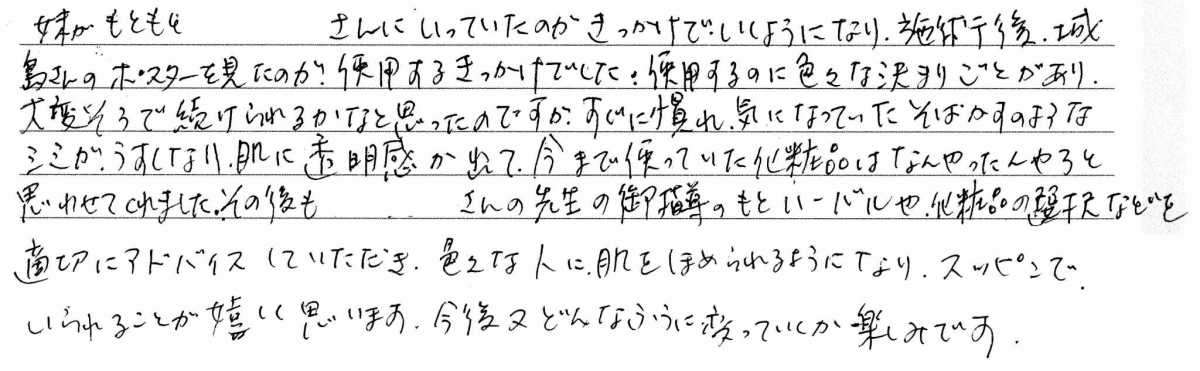 妹がもともと さんにいっていたのがきっかけでいくようになり、施術亍後、城
島さんのポスターを見たのが、使用するきっかけでした。使用するのに色々な決まりごとがあり、
大変そうで続けられるかなと思ったのですが、すぐに慣れ、気になっていたそばかすのような
シミが、うすくなり、肌に透明感が出て、今まで使っていた化粧品はなんやったんやろと
思わせてくれました。その後も さんの先生の御指導のもとハーバルや、化粧品の選択などを
適切にアドバイスしていただき、色々な人に、肌をほめられるようになり、スッピンで、
いられることが嬉しく思います。今後又どんなふうに変っていくか楽しみです。